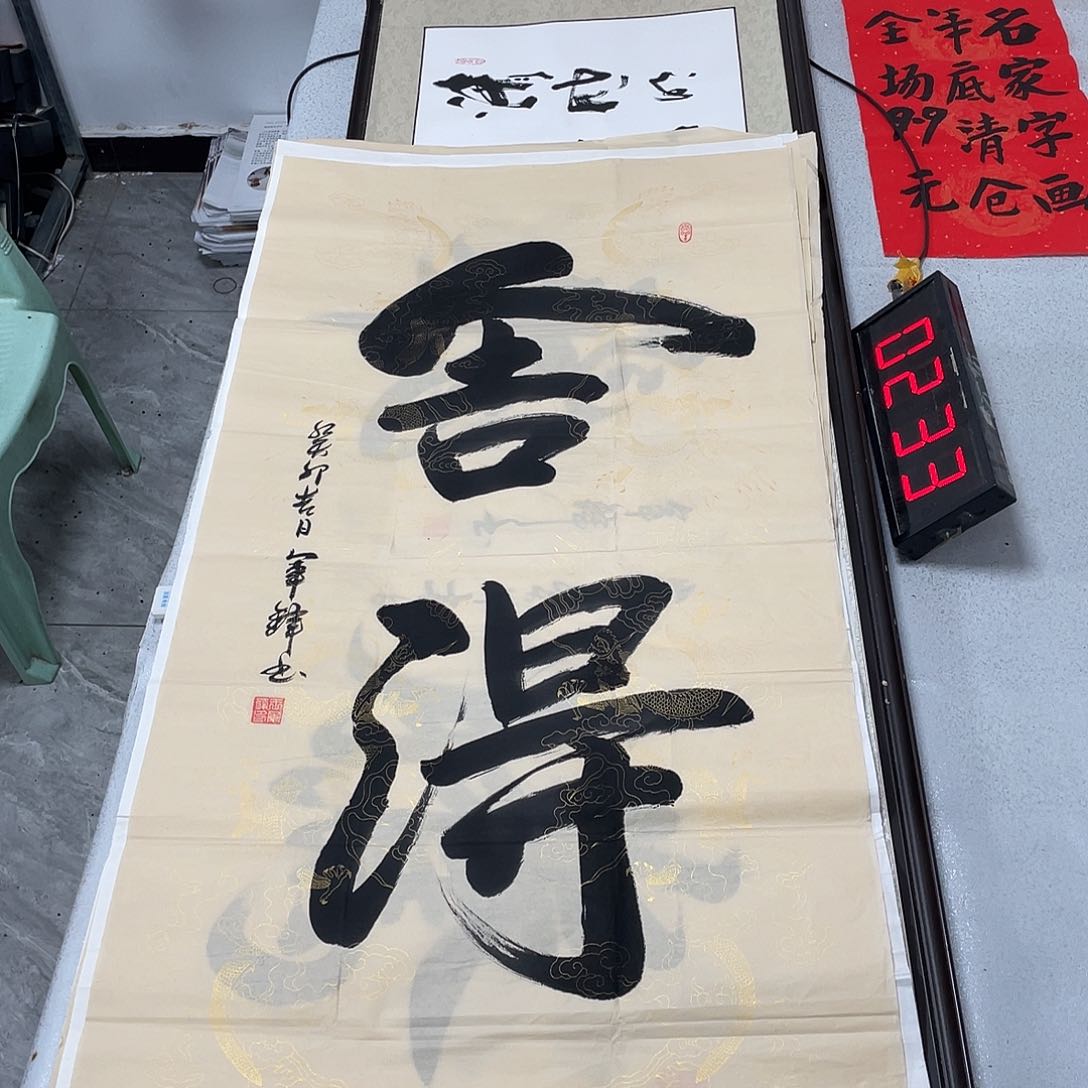 舍得
癸卯吉日军锋书
名家字画
年底清仓
全场99元
0233